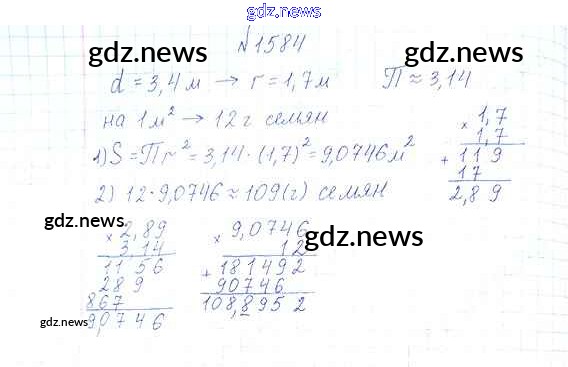 gdz.news
№1584
gdz.news
gdz.news
d = 3,4 м → r = 1,7 м П ≈ 3,14
на 1 м² → 12 г семян
1) S = Пr² = 3,14 · (1,7)² = 9,0746 м²
2) 12 · 9,0746 ≈ 109 (г) семян
× 1,7
1,7
+ 119
17
2,89
gdz.news
× 2,89
3,14
1156
289
867
9,0746
× 9,0746
12
+ 181492
90746
108,8952
gdz.news
gdz.news
gdz.news